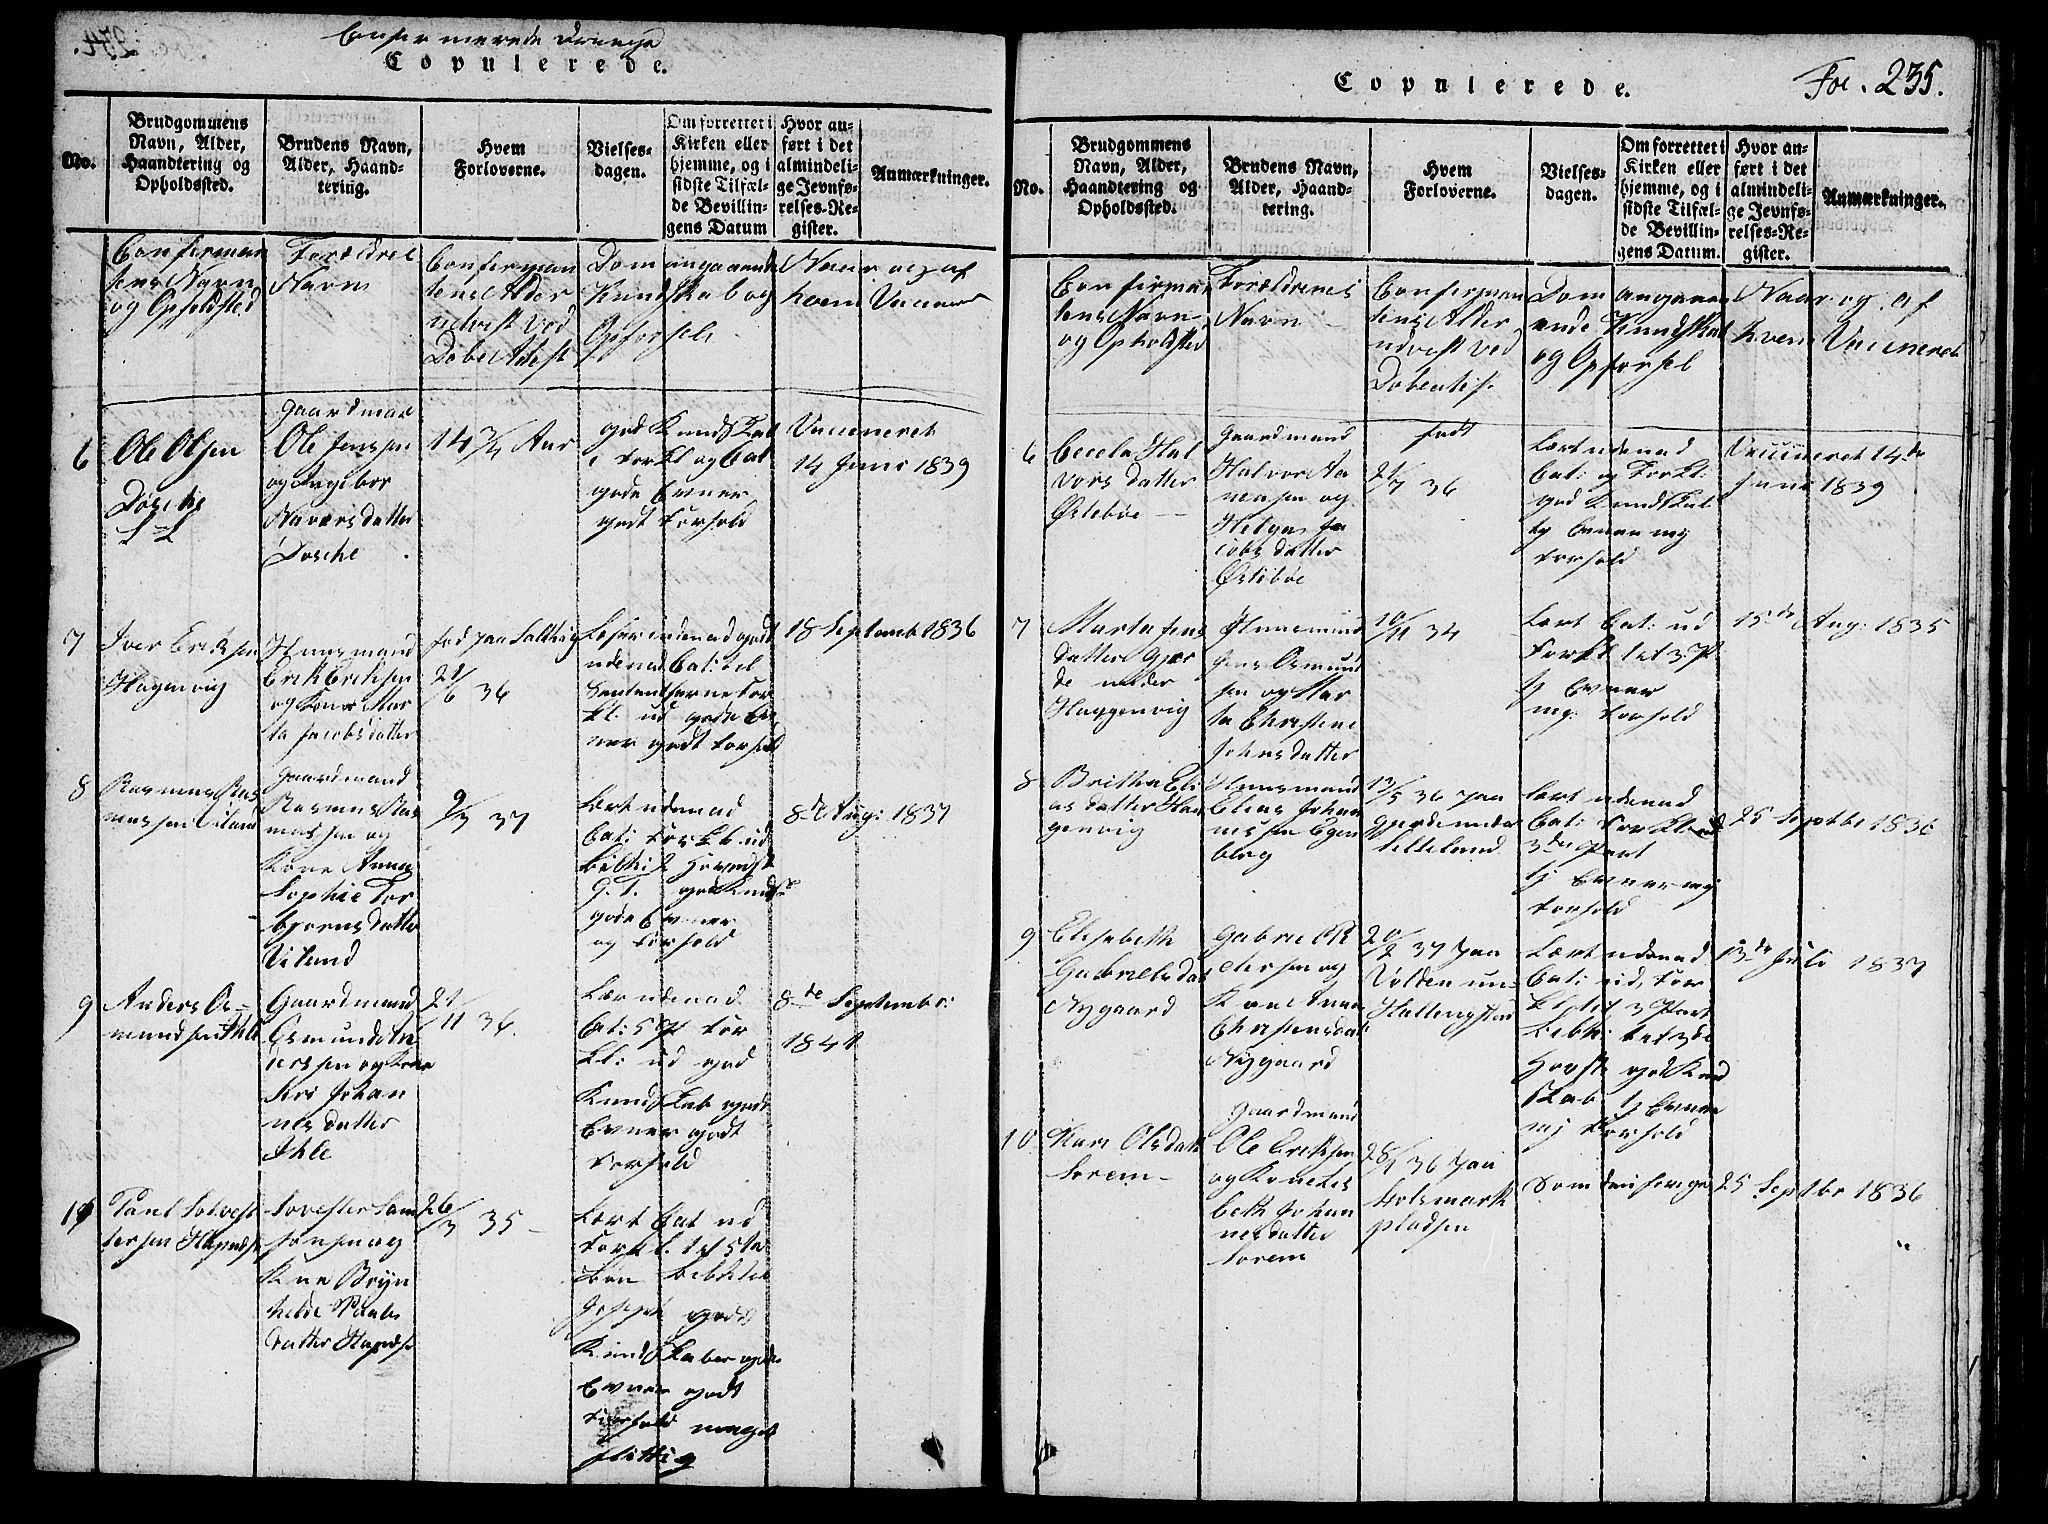 Confirmerede Drenge
Copulerede.
No.
Brudgommens
Navn, Alder,
Haandtering og
Opholdssted.
Brudens Navn,
Alder, Haand-
tering.
Hvem
Forloverne.
Vielses-
dagen.
Om forrettet i
Kirken eller
hjemme, og i
sidste Tilfæl-
de Bevillin-
gens Datum
Hvor an-
ført i det
almindeli-
ge Jevnfø-
relses-Re-
gister.
Anmærkninger.
Confirman
tens Navn
og Opholdsted
Forældres
Navn
Confirman
tens Alder
udvist ved
Døbe Attest
Dom angaaende
Kundskab og
Opførsel
Naar og af
hvem Vaccineret
6
Ole Olsen
Dosche
Gaardman
Ole Jenssen
og Ingebor
datter
Dosche
14 3/4 Aar
god Kundskab
i Forkl og Cat
gode Evner
godt Forhold
Vaccineret
14 Juni 1839
7
Iver Eriksen
Hagenvig
Huusmand
Erik Eriksen
og Kone Mar
ta Jacobsdatter
fød paa
21/6 36
Læser indenad godt
udenad Cat: til
Forkl. ud gode Ev
ner godt Forhold
18 Septemb 1836
8
Rasmus Ras
mussen Viland
Gaardmand
Rasmus Ras
mussen og
Kone Anna
Sophie Tor
bjørnsdatter
Viland
9/3 37
Lært udenad
Cat: Forkl. ud
god Kundsk
gode Evner
og Forhold
8de Aug: 1837
9
Anders As
mundsen Ihle
Gaardmand
Asmund An
derssen og Kone
Kri Johan
nesdatter
Ihle
21/11 36.
Lær udenad
Cat: 5 P For
kl: ud god
Kundskab gode
Evner godt
Forhold
8de September
1841
10
Paul Solvest
Sovester Sam
sonsen og
Kone Bryn
hilde Pauls
datter
26/3 35
Lært Cat ud
Forkl. til 5te
Bøn
godt
Kundskaber gode
Evner godt
Forhold meget
flittig
Copulerede.
Foe. 235.
No.
Brudgommens
Navn, Alder,
Haandtering og
Opholdssted.
Brudens Navn,
Alder, Haand-
tering.
Hvem
Forloverne.
Vielses-
dagen.
Om forrettet i
Kirken eller
hjemme, og i
sidste Tilfæl-
de Bevillin-
gens Datum.
Hvor an-
ført i det
almindeli-
ge Jevnfø-
relses-Re-
gister.
Anmærkninger.
Confirman
tens Navn
og Opholdsted
Forældrenes
Navn
Confirman
tens Alder
udvist ved
Døbeattest
Dom angaae
ende Kundskab
og Opførsel
Naar og af
hvem Vaccineret
6
Cecela Hal
vorsdatter
Østebøe
Gaardmand
Halvor Aa
nensen og
Helga Ja
cobsdatter
Østebøe
født
21/7 36
Lært udenad
Cat: og Forkl:
god Kundskab
tg Evner mg
Forhold
Vaccineret 14de
Juni 1839
7
Marta Jens
datter Gjer
de under
Haggenvig
Huusmand
Jens Osmund
sen og Mar
ta Christine
Johnsdatter
10/11 34
Lært Cat: ud
Forkl til 3 P
tg Evner
mg: Forhold
15de Aug: 1835
8
Britha Eli
asdatter Hag
genvig
Huusmand
Elias Johan
nissen Egen
berg
13/5 36 paa
Gjerde under
Tetteland
Lært udenad
Cat: Forkl
3de Part
tg Evner mg
Forhold
25 Septbr 1836
9
Elisabeth
Gabrielsdat
Nygaard
Gabriel P
edersen og
Kone Anna
Christensdat
Nygaard
20/2 37 paa
Volden un
Lært udenad
Cat: ud, For
kl til 3 Part
til 3de
god Kund
skab tg Evner
mg Forhold
13de Juli 1837
10
Kari Olsdatt
Sorem
Gaardmand
Ole Eriksen
og Kone Lis
beth Johan
nesdatter
Sorem
28/1 36 paa
Holsmark
pladsen
Som den forige
25 Septbr 1836